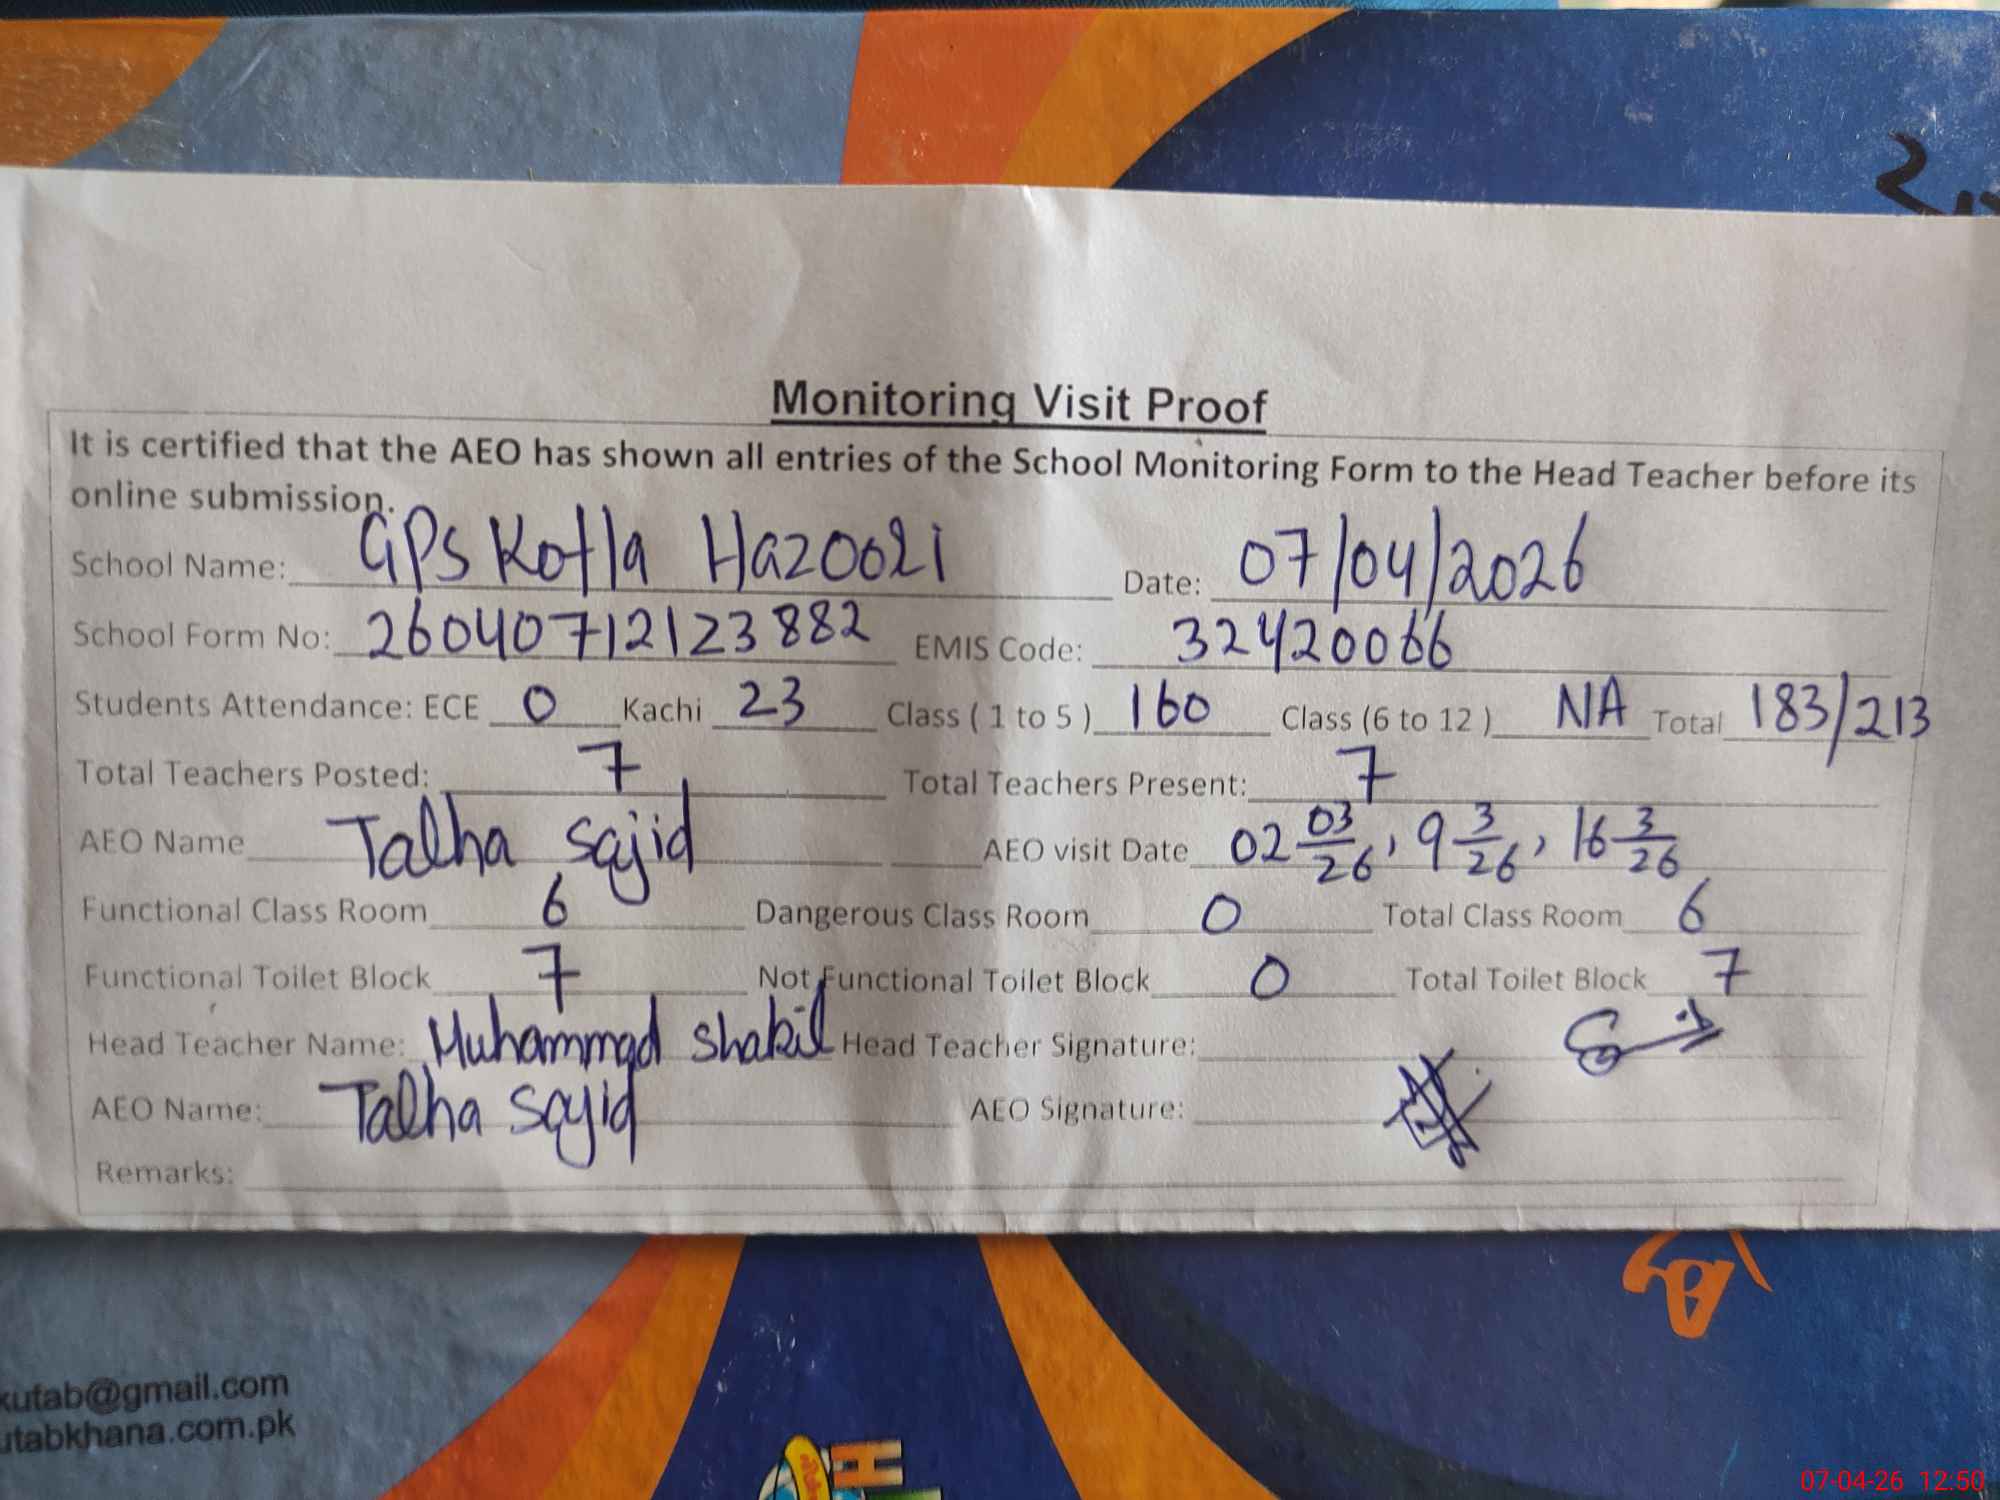 Monitoring Visit Proof
It is certified that the AEO has shown all entries of the School Monitoring Form to the Head Teacher before its
online submission.
School Name: GPS Kotla Hazoori Date: 07/04/2026
School Form No: 26040712123882 EMIS Code: 32420066
Students Attendance: ECE 0 Kachi 23 Class ( 1 to 5 ) 160 Class (6 to 12 ) NA Total 183/213
Total Teachers Posted: 7 Total Teachers Present: 7
AEO Name Talha Sajid AEO visit Date 02 03/26, 9 3/26, 16 3/26
Functional Class Room 6 Dangerous Class Room 0 Total Class Room 6
Functional Toilet Block 7 Not Functional Toilet Block 0 Total Toilet Block 7
Head Teacher Name: Muhammad Shakil Head Teacher Signature:
AEO Name: Talha Sajid AEO Signature:
Remarks:
kutab@gmail.com
utabkhana.com.pk
07-04-26 12:50